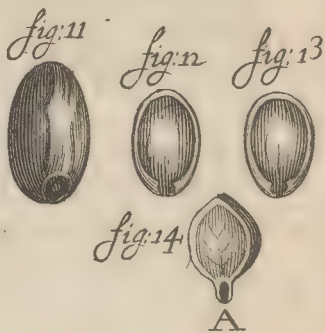 fig:11
fig:12
fig:13
fig:14
A